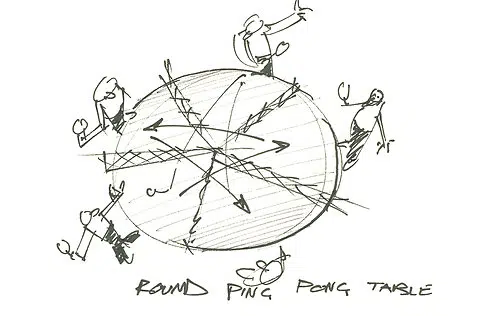 ROUND PING PONG TABLE